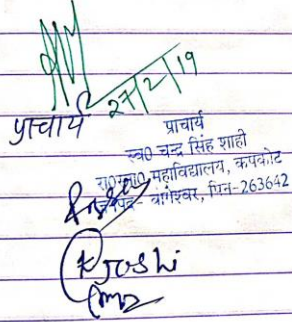 27/2/19
प्राचार्य
प्राचार्य
स्व0 चन्द्र सिंह शाही
रा0स्ना0 महाविद्यालय, कपकोट
जनपद- बागेश्वर, पिन-263642
Joshi